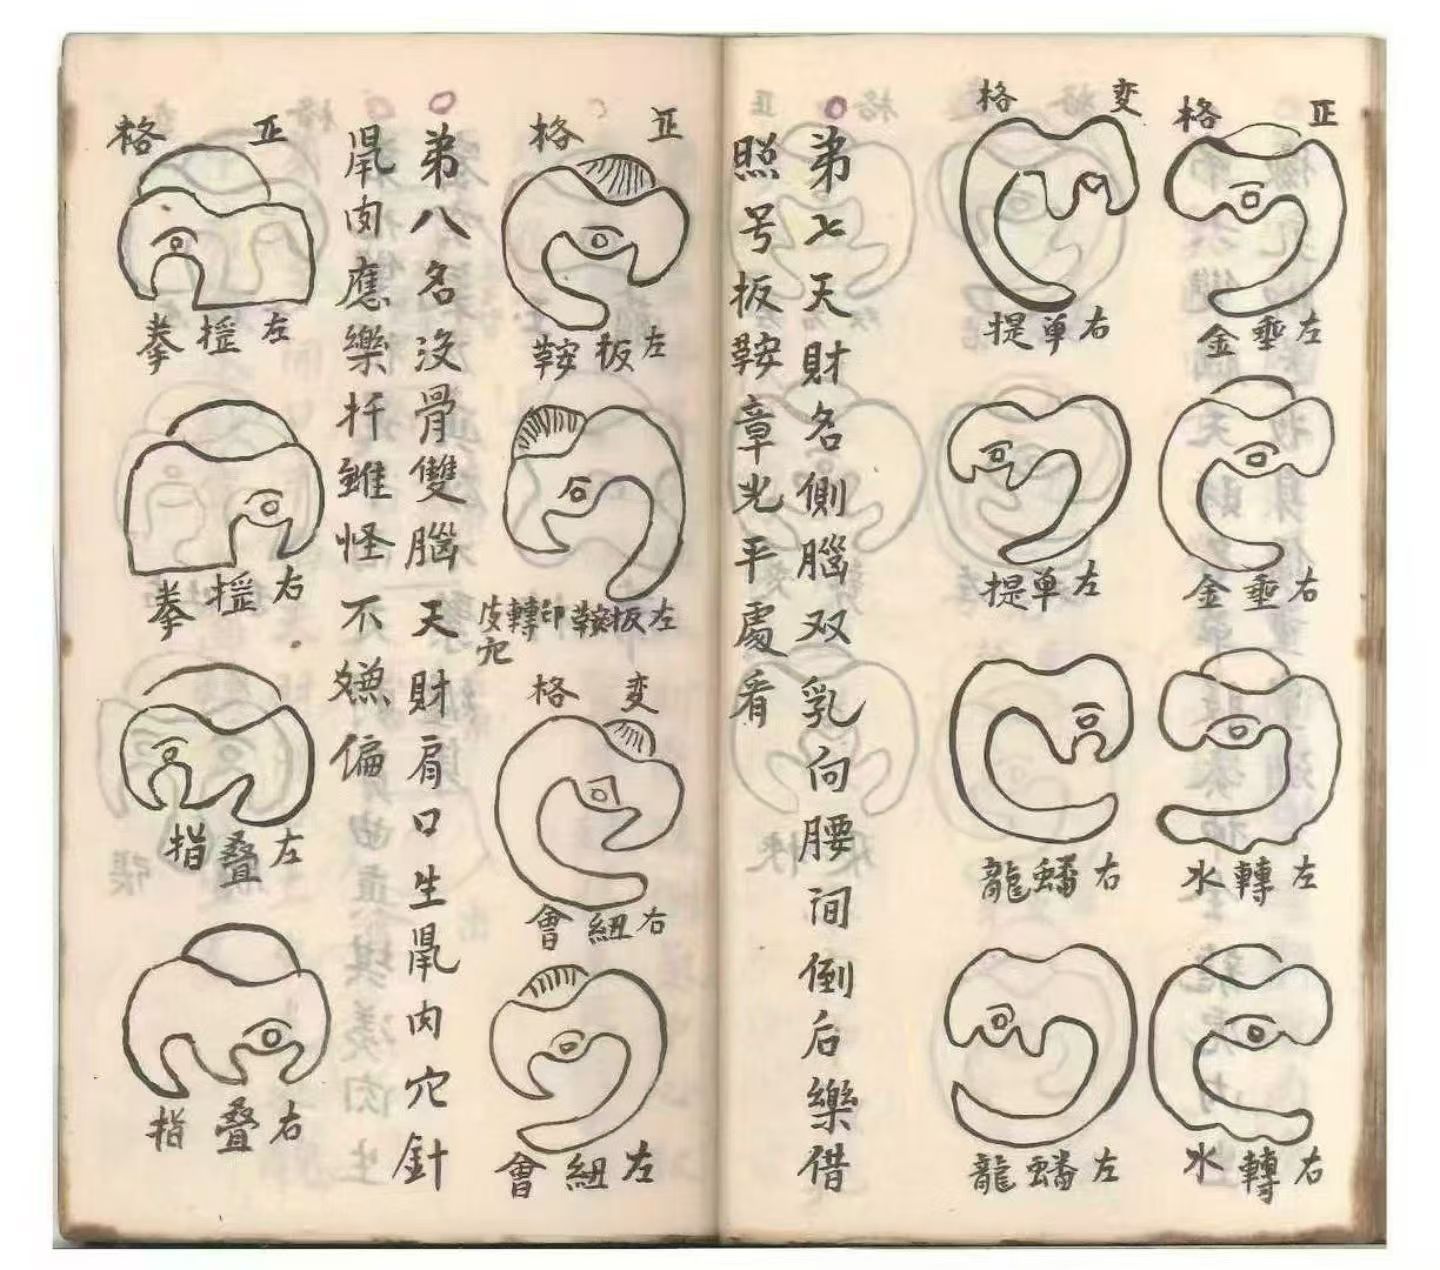 正格
左垂金
右垂金
左轉水
右轉水
变格
右单提
左单提
右蟠龍
左蟠龍
弟七天財名側腦双乳向腰间倒后樂借
照号扳鞍章光平處看
正格
左扳鞍
左扳鞍印轉皮穴
变格
右紐會
左紐會
弟八名没骨雙腦天財肩口生鼡肉穴針
鼡肉應樂扦雖怪不嫌偏
正格
左搵拳
右搵拳
左叠指
右叠指